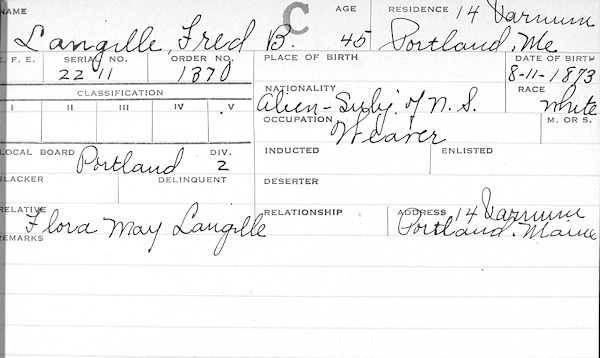 NAME C AGE RESIDENCE 14 Varnum
Langille, Fred B. 45 Portland, Me
E. F. E. SERIAL NO. ORDER NO. PLACE OF BIRTH DATE OF BIRTH
22 11 1370 8-11-1873
CLASSIFICATION NATIONALITY RACE
I II III IV V Alien-Subj. of N.S. White
OCCUPATION M. OR S.
Weaver
LOCAL BOARD DIV. INDUCTED ENLISTED
Portland 2
SLACKER DELINQUENT DESERTER
RELATIVE RELATIONSHIP ADDRESS 14 Varnum
Flora May Langille Portland, Maine
REMARKS